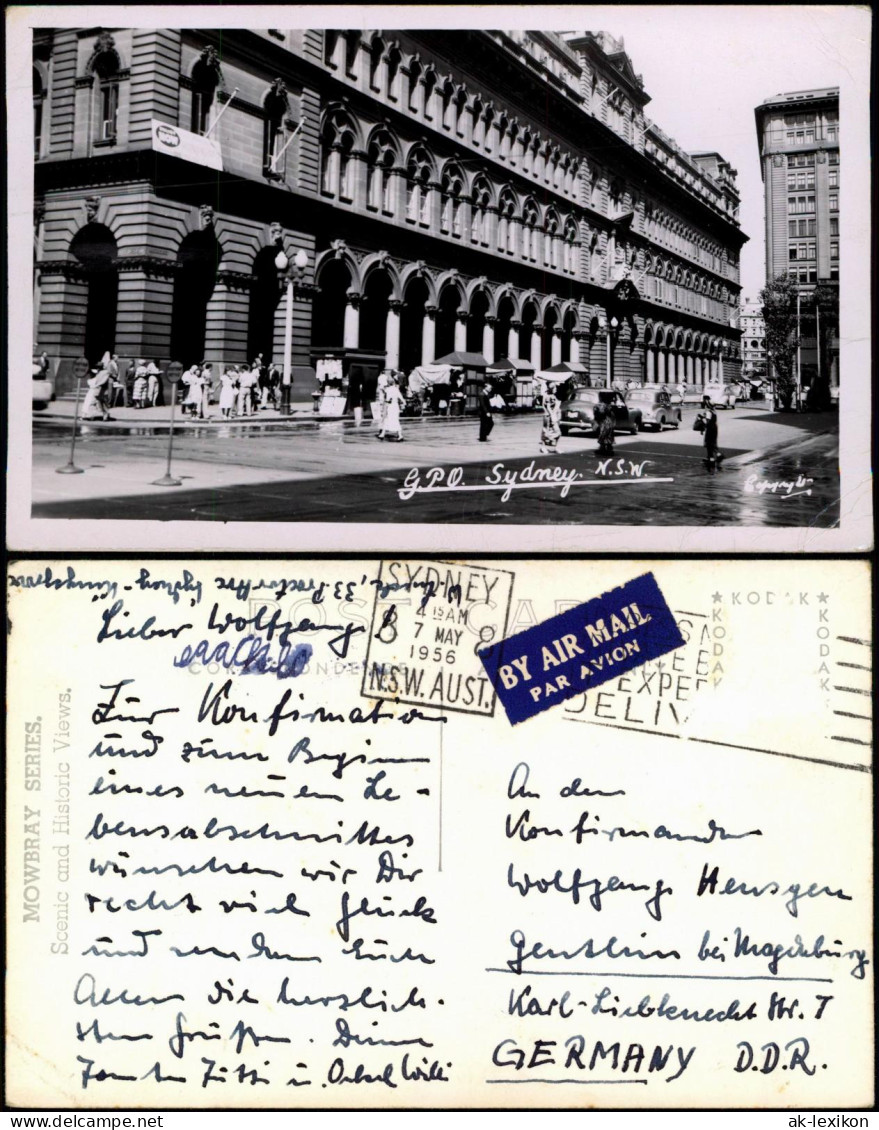 G.P.O. Sydney. N.S.W.
Copyright
33 Proctor Ave Sydney - Kingsgrove
POST CARD
CORRESPONDENCE
MOWBRAY SERIES.
Scenic and Historic Views.
SYDNEY
4 15 AM
7 MAY
1956
N.S.W. AUST.
BY AIR MAIL
PAR AVION
EXPE
DELIV
★ KODAK ★
KODAK
KODAK
Lieber Wolfgang!
Zur Konfirmation
und zum Beginn
eines neuen Le-
bensabschnittes
wünschen wir Dir
recht viel Glück
und senden Euch
Allen die herzlich-
sten Grüße. Deine
Tante und Onkel Willi
An den
Konfirmanden
Wolfgang
Genthin bei Magdeburg
Karl-Liebknecht Str. 7
GERMANY D.D.R.
© ak-ansichtskarten.de
ak-lexikon